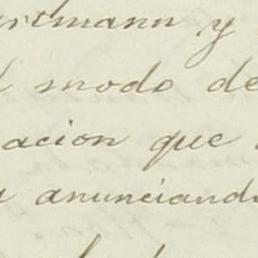 rtmann y
modo de
acion que
anunciando